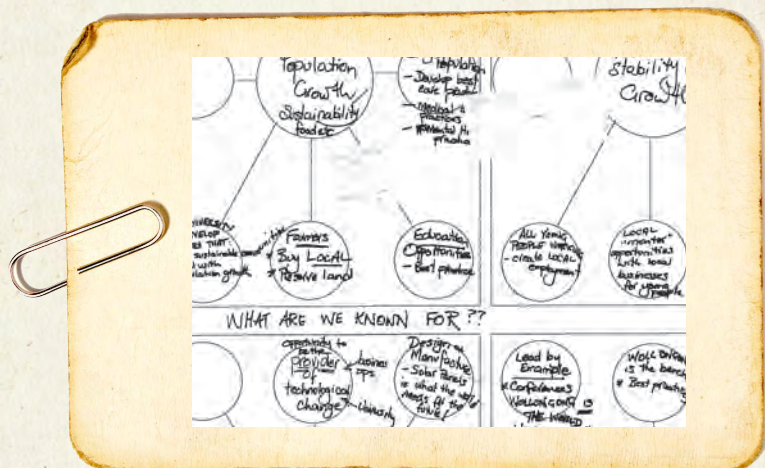 Population
Growth
Sustainability
food etc
Population
- Develop best
care
- Medical
practices
- Mental
practice
stability
Growth
VERSITY
VELOP
THAT
sustainable
with
lation growth
Farmers
* Buy LOCAL
* Reserve land
Education
Opportunities
- Best practice
ALL YOUNG
PEOPLE
- create LOCAL
employment
LOCAL
opportunities
with local
businesses
for young
people
WHAT ARE WE KNOWN FOR ??
opportunity to
be the
PROVIDER
OF
technological
change
business
ops
University
Design &
Manufacture
- Solar Panels
is what the world
needs for the
future!
Lead by
Example
* Conferences
WOLLONGONG IS
THE WORLD
WOLLONGONG
is the
* Best practice